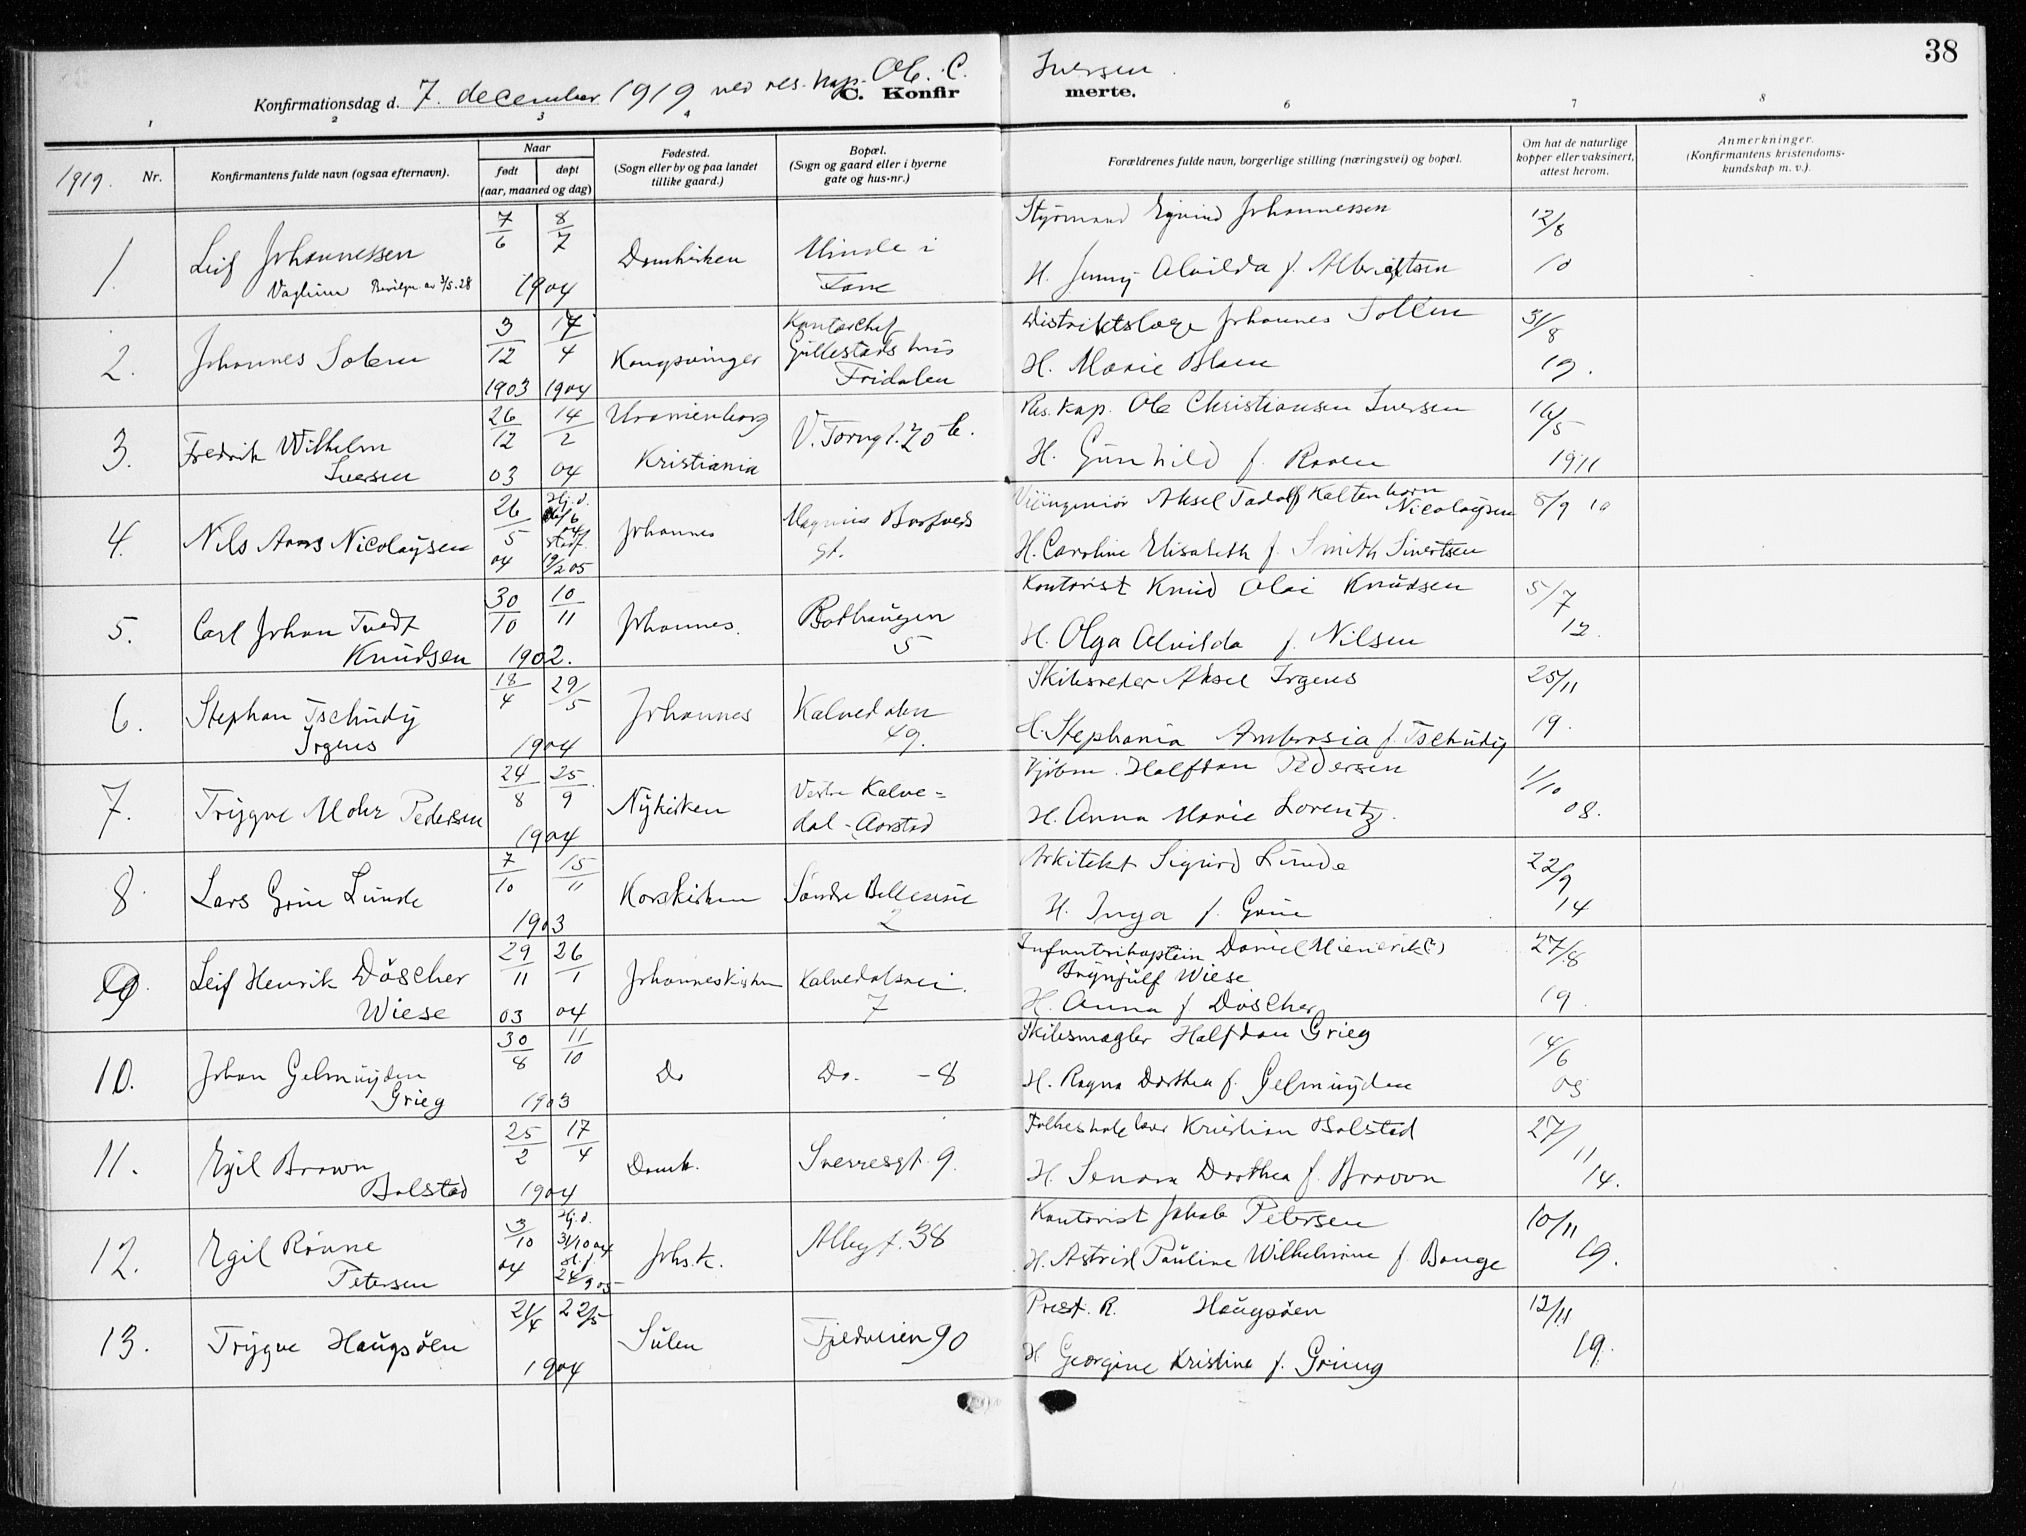 38
Konfirmationsdag d. 7. december 1919 ved res. kap. Ole C. Iversen.
C. Konfirmerte.
1 2 3 4 6 7 8
1919. Nr.
Konfirmantens fulde navn (ogsaa efternavn).
Naar
født døpt
(aar, maaned og dag)
Fødested.
(Sogn eller by og paa landet
tillike gaard.)
Bopæl.
(Sogn og gaard eller i byerne
gate og hus-nr.)
Forældrenes fulde navn, borgerlige stilling (næringsvei) og bopæl.
Om hat de naturlige
kopper eller vaksinert,
attest herom.
Anmerkninger.
(Konfirmantens kristendoms-
kundskap m. v.).
1. Leif Johannessen
Vaglum Bevilgn. av 3/5.28
7/6 8/7
1904
Domkirken
Minde i
Fane
Styrmand Eyvind Johannessen
H. Jenny Alvilda f. Albrigtsen
12/8
10
2. Johannes Solem
3/12 17/4
1903 1904
Kongsvinger
Kontorchef
Gillestads hus
Fridalen
Distriktslæge Johannes Solem
H. Marie Blom
31/8
19.
3. Fredrik Wilhelm
Iversen
26/12 14/2
03 04
Uranienborg
Kristiania
V. Torvgt. 20 b.
Res. kap. Ole Christiansen Iversen
H. Gunhild f. Raaen
16/5
1911
4. Nils Aars Nicolaysen
26/5
04
Hj. d.
/6
04
stadf.
19/2 05
Johannes
Magnus Barfods
gt.
Veiingeniør Aksel Tadolf Kaltenborn
Nicolaysen
H. Caroline Elisabeth f. Smith Sivertsen
8/9 10
5. Carl Johan Tvedt
Knudsen
30/10 10/11
1902.
Johannes.
Bothaugen
5
Kontorist Knud Olai Knudsen
H. Olga Alvilda f. Nilsen
5/7
12.
6. Stephan Tschudy
Irgens
18/4 29/5
1904
Johannes
Kalvedalen
49.
Skibsreder Aksel Irgens
H. Stephania Ambrosia f. Tschudy
25/11
19.
7. Trygve Mohr Pedersen
24/8 25/9
1904
Nykirken
Vestre Kalve=
dal - Aarstad
Kjøbm. Halfdan Pedersen
H. Anna Marie Lorentz.
1/10
08.
8. Lars Grue Lunde
7/10 15/11
1903
Korskirken
Søndre Bellevue
2
Arkitekt Sigurd Lunde
H. Inga f. Grue
22/9
14
9. Leif Henrik Döscher
Wiese
29/11 26/1
03 04
Johanneskirken
Kalvedalsvei.
7
Infanterikaptein Daniel Mienerik(?)
Brynjulf Wiese
H. Anna f Döscher
27/8
19.
10. Johan Gelmuyden
Grieg
30/8 11/10
1903
Do
Do. - 8
Skibsmægler Halfdan Grieg
H. Ragna Dorthea f. Gelmuyden
14/6
05
11. Egil Brown
Bolstad
25/2 17/4
1904
Domk.
Sverresgt. 9.
Folkeskolelærer Kristian Bolstad
H. Senora Dorthea f. Brown
27/11
14.
12. Egil Rönne
Petersen
3/10
04
Hj. d.
31/10 04
st. f.
24/9 05
Johs. k.
Allegt. 38
Kontorist Jakob Petersen
H. Astrid Pauline Wilhelmine f. Bauge
10/11
19.
13. Trygve Haugsöen
21/4 22/5
1904
Sulen
Fjeldveien 90
Prest. R. Haugsöen
H Georgine Kristine f. Grung
12/11
19.